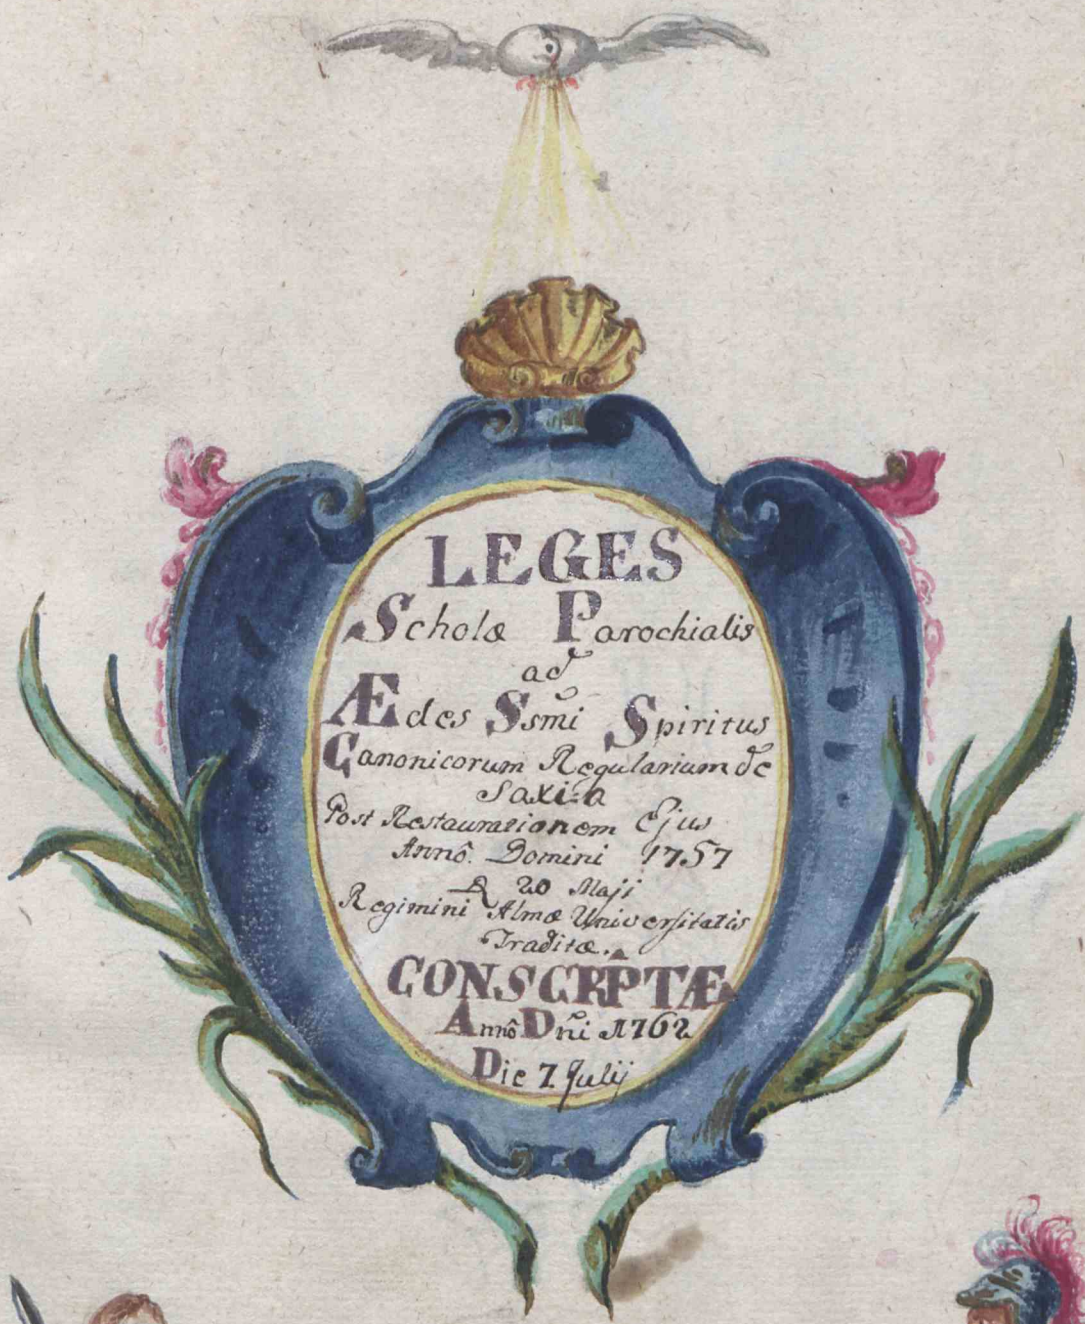 LEGES
Scholæ Parochialis
ad
Ædes Ssmi Spiritus
Canonicorum Regularium de
Saxia
Post Restaurationem Ejus
Annô Domini 1757
D 20 Maji
Regimini Almæ Universitatis
Traditæ.
CONSCRPTÆ
Annô Dñi 1762
Die 7 Julij